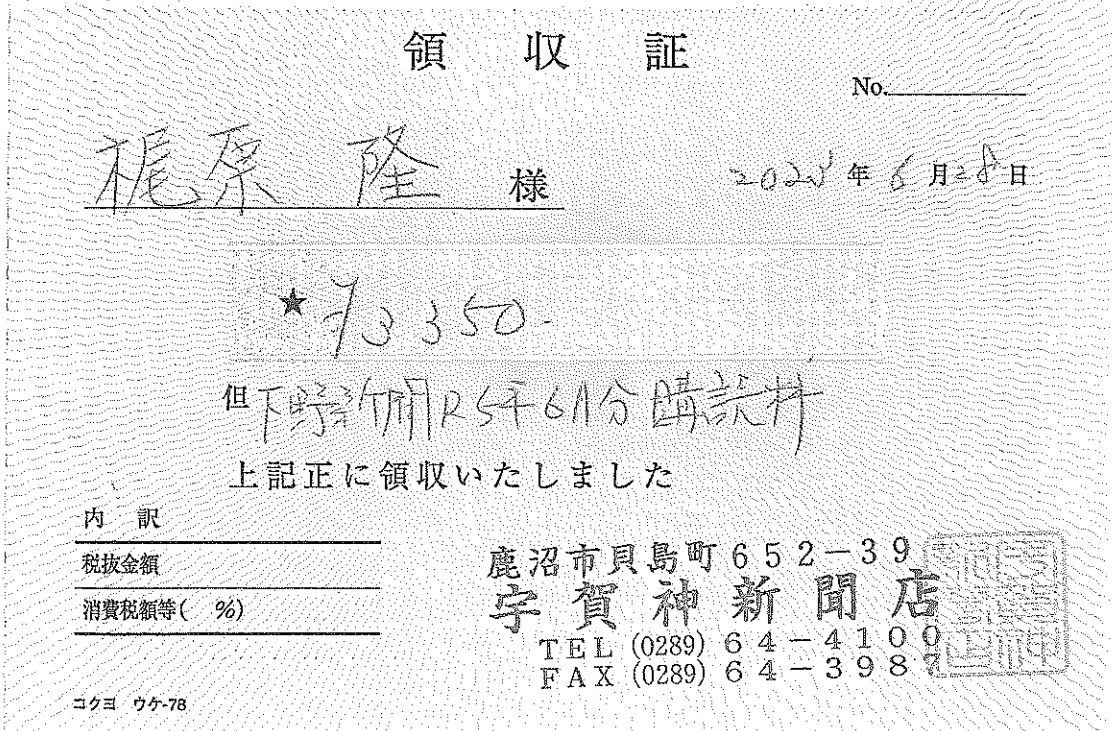 領 収 証
No.
梶原 隆 様
2023年6月28日
★ ¥3350-
但 下野新聞R5年6月分購読料
上記正に領収いたしました
内 訳
税抜金額
消費税額等( %)
鹿沼市貝島町652-39
宇賀神新聞店
TEL (0289) 64-4100
FAX (0289) 64-3987
コクヨ ウケ-78